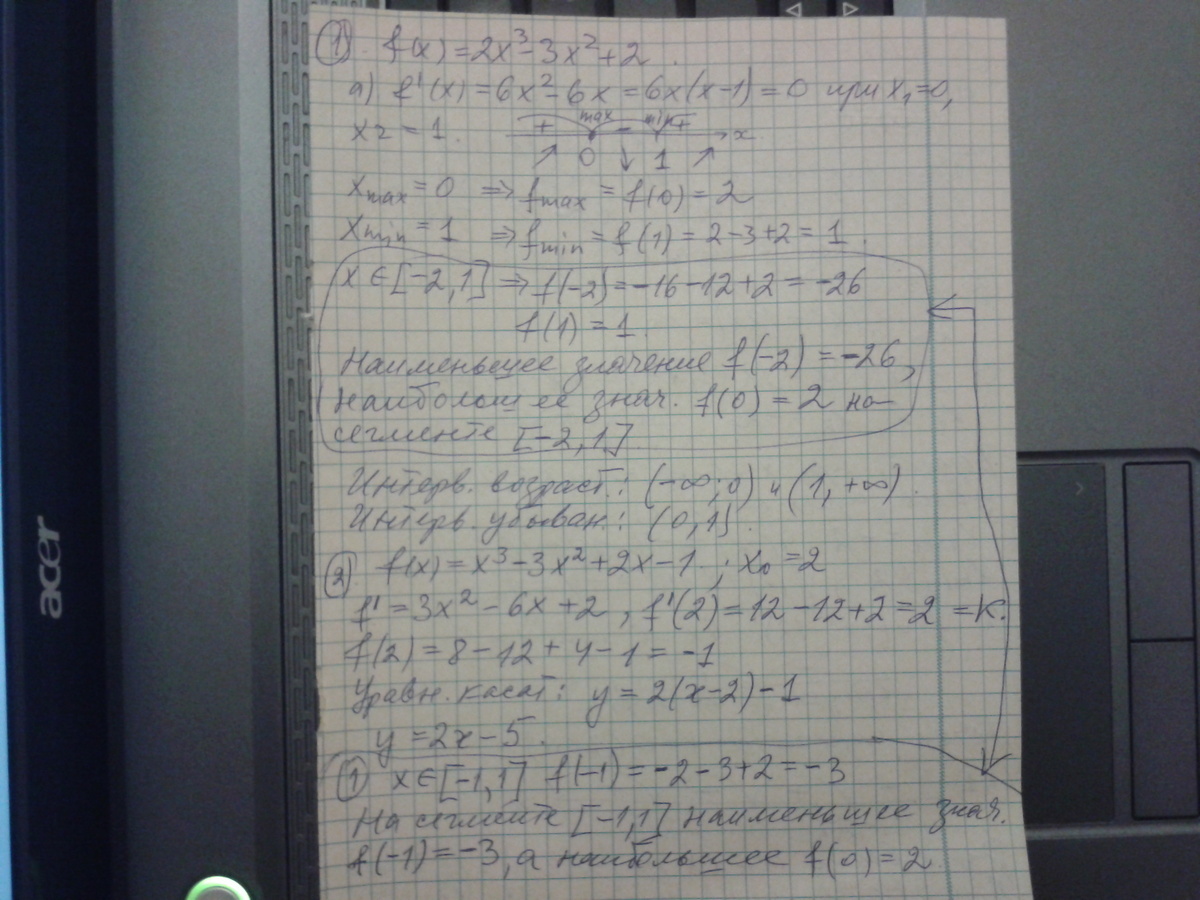 ① f(x) = 2x³-3x²+2.
а) f'(x) = 6x²-6x = 6x(x-1) = 0 при x₁=0,
x₂ = 1.
+ max - min + x
↗ 0 ↘ 1 ↗
xmax = 0 ⇒ fmax = f(0) = 2
xmin = 1 ⇒ fmin = f(1) = 2-3+2 = 1.
x ∈ [-2,1] ⇒ f(-2) = -16-12+2 = -26
f(1) = 1
Наименьшее значение f(-2) = -26,
Наибольшее знач. f(0) = 2 на
сегменте [-2,1]
Интерв. возраст.: (-∞;0) и (1,+∞).
Интерв. убыван.: (0,1).
② f(x) = x³-3x²+2x-1; x₀=2
f' = 3x²-6x+2, f'(2) = 12-12+2 = 2 = k.
f(2) = 8-12+4-1 = -1
Уравн. касат: y = 2(x-2)-1
y = 2x-5.
① x ∈ [-1,1] f(-1) = -2-3+2 = -3
На сегменте [-1,1] наименьшее знач.
f(-1) = -3, а наибольшее f(0) = 2
acer